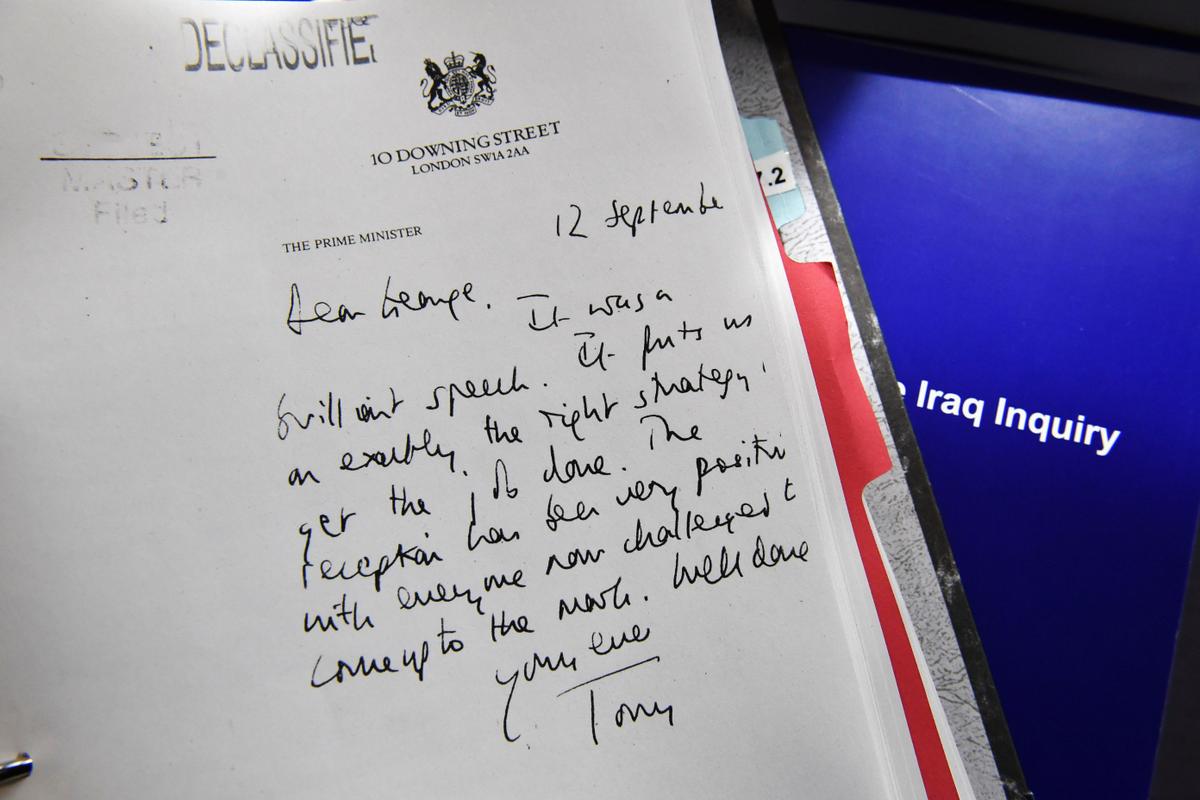 DECLASSIFIED
MASTER
Filed
10 DOWNING STREET
LONDON SW1A 2AA
THE PRIME MINISTER
12 September
Dear George.
It was a
brilliant speech. It puts us
on exactly the right strategy to
get the job done. The
reception has been very positive
with everyone now challenged to
come up to the mark. Well done
yours ever
Tony
7.2
e Iraq Inquiry